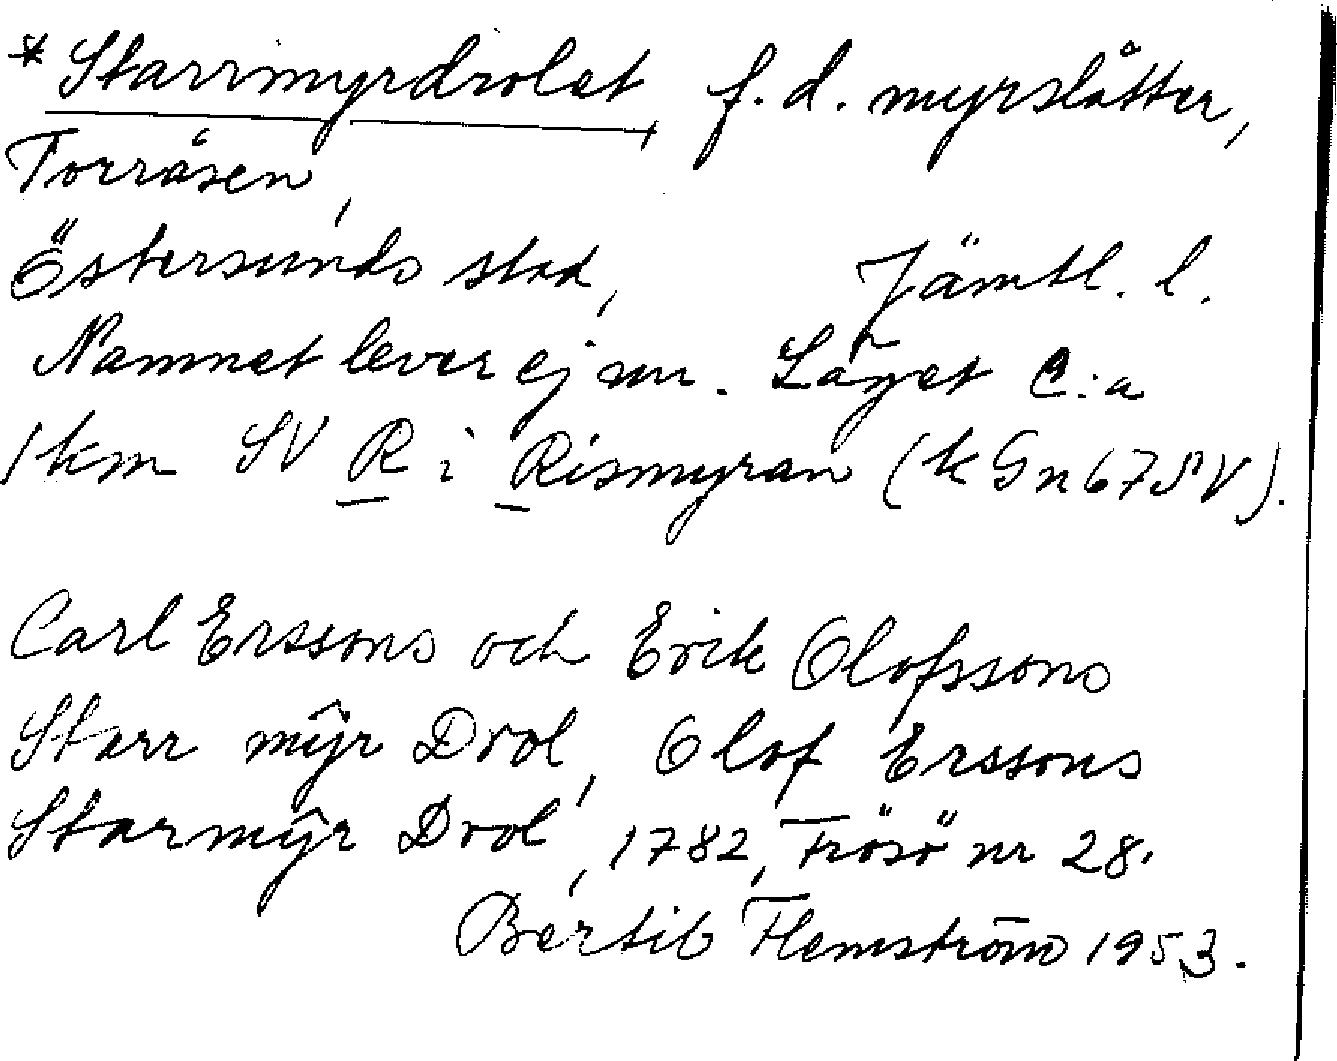 * Starrmyrdrolet, f. d. myrslåtter,
Torråsen,
Östersunds stad, Jämtl. l.
Namnet lever ej nu. Läget c:a
1 km SV R i Rismyran (k Gn 67 SV).
Carl Erssons och Erik Olofssons
Starr mÿr Drol, Olof Erssons
Starmÿr Drol, 1782, Frösö nr 28.
Bertil Flemström 1953.